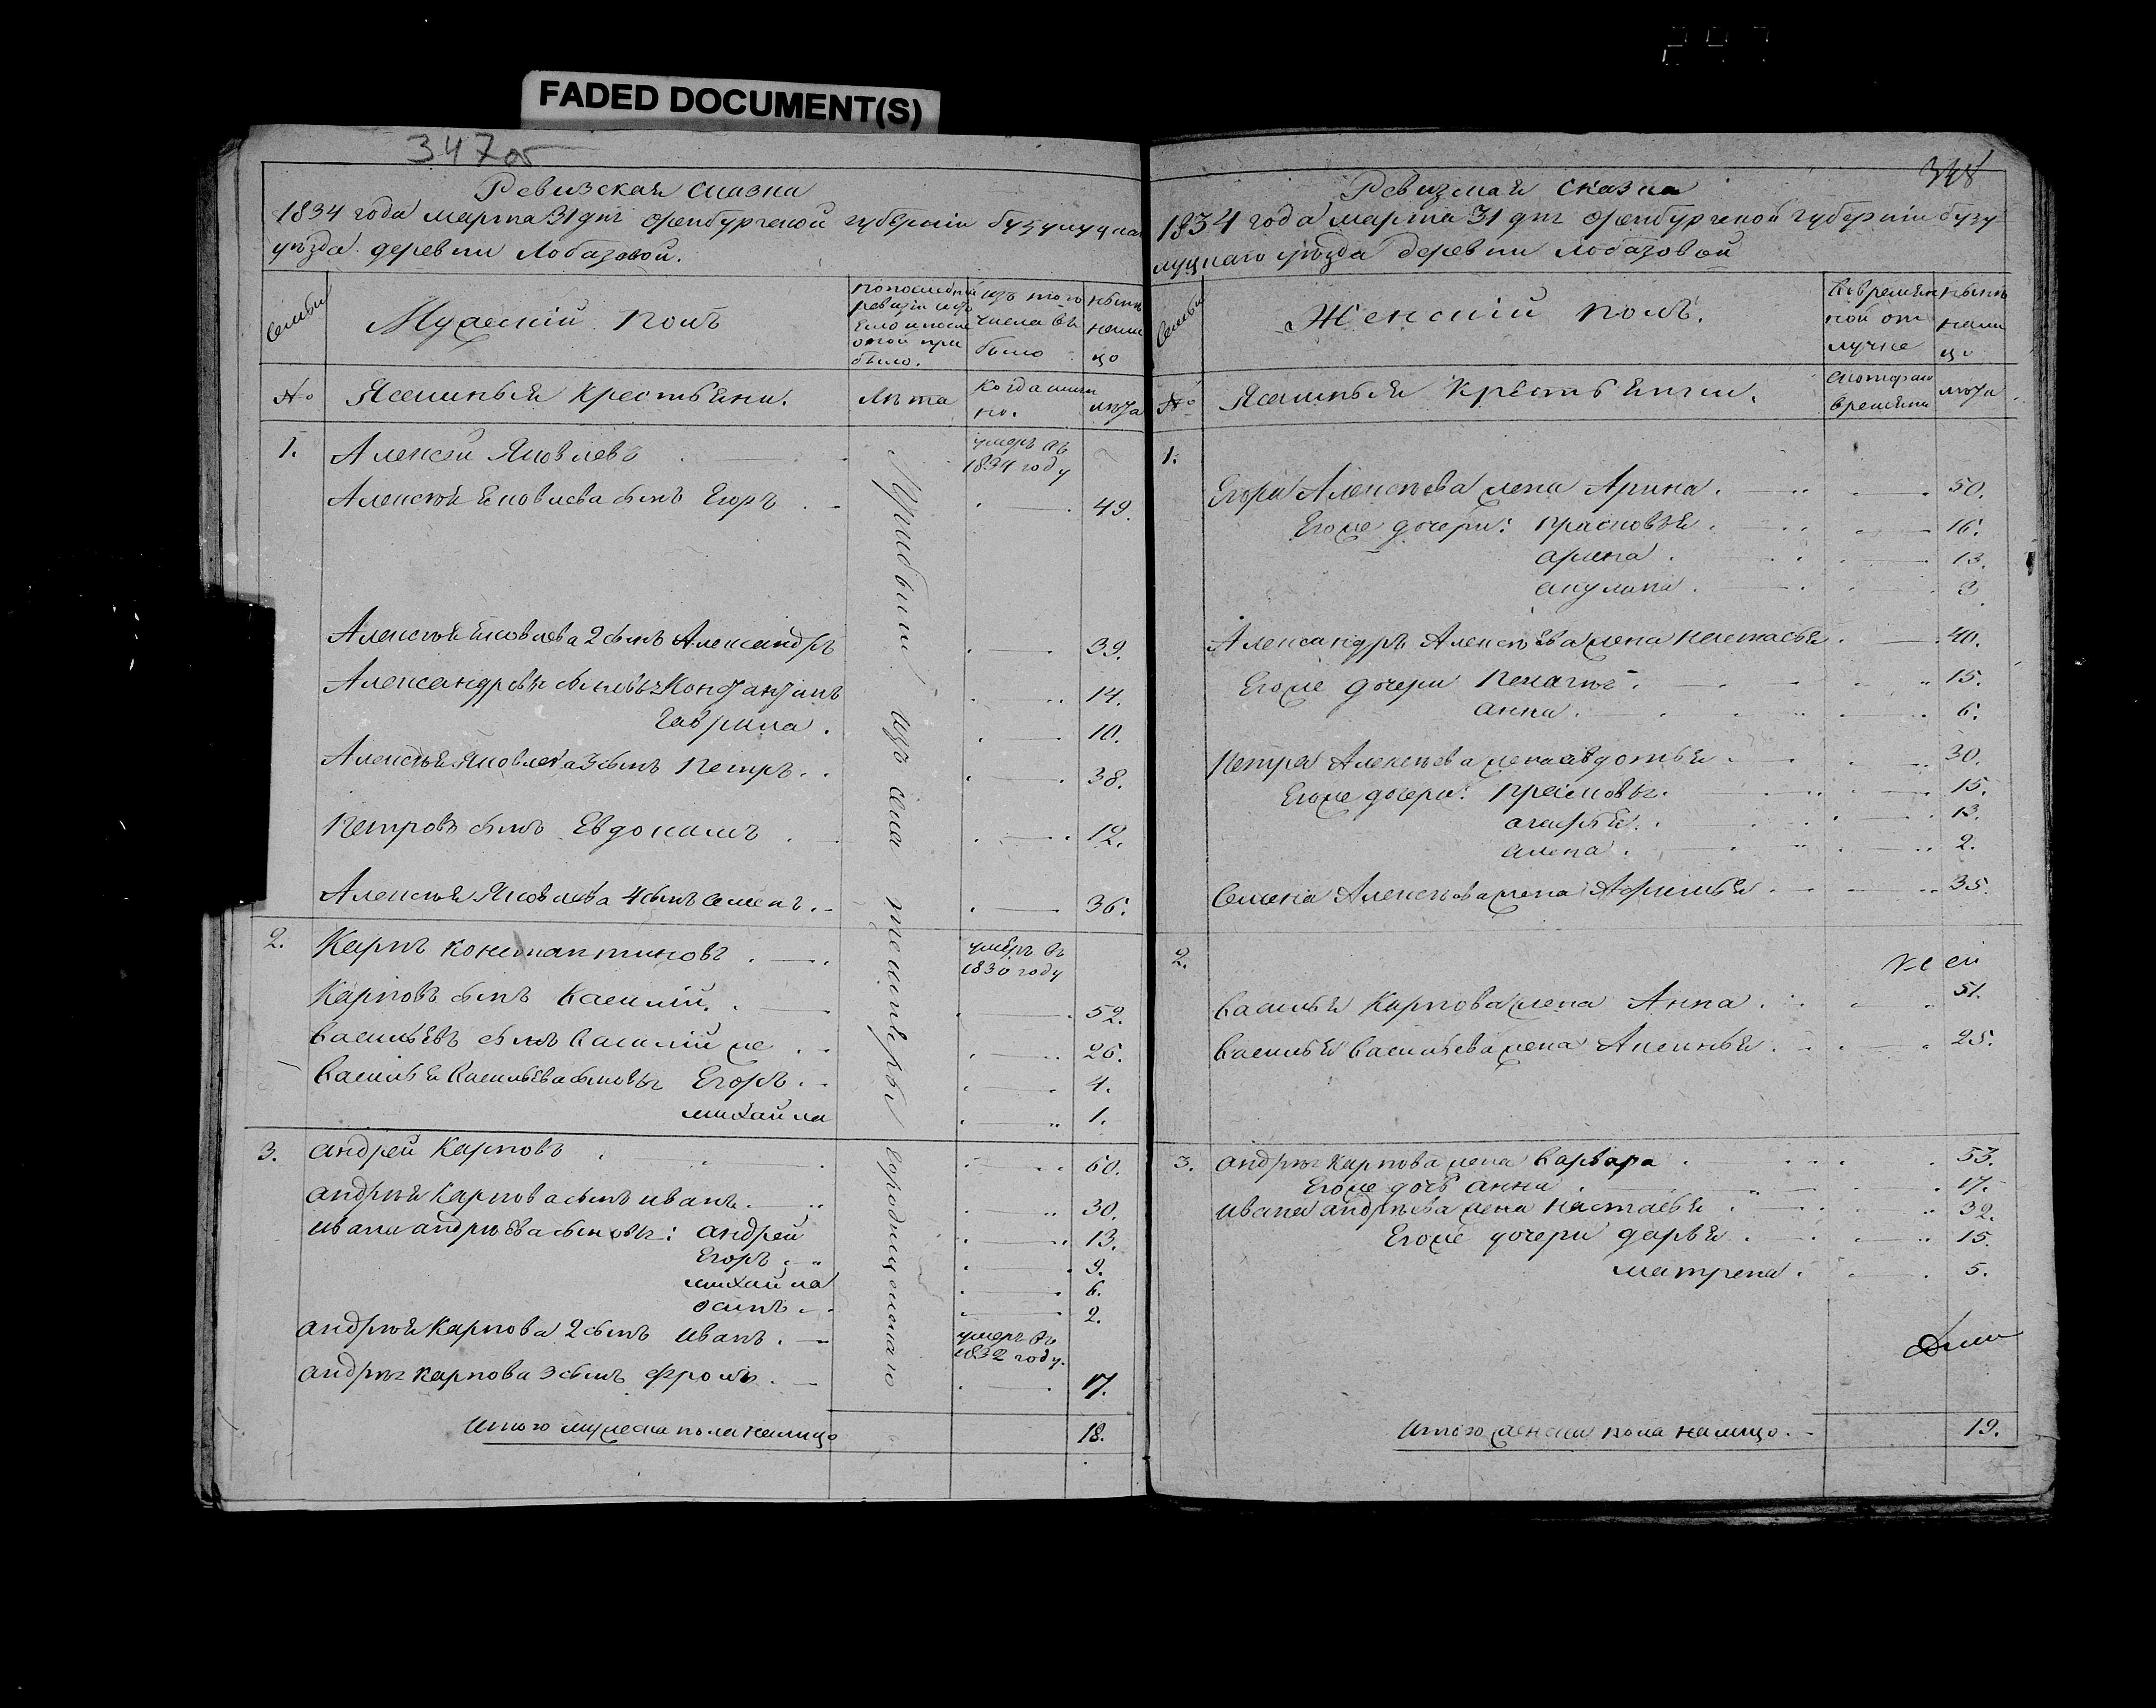 FADED DOCUMENT(S)
347об
Ревизская сказка
1834 года марта 31 дня оренбургской губернiи бузулуцкаго
уѣзда деревни Лобазовой.
Семьи
Мужескiй полъ
по последней ревизiи состояло и после оной прибыло.
изъ того числа выбыло
нынѣ на лицо
№
Ясашныя крестьяни.
Лѣта
когда имянно.
лѣта
1.
Алексей Яковлевъ
умеръ въ 1831 году
Алексѣя Яковлева сынъ Егоръ 49.
Алексѣя Яковлева 2 сынъ Александръ 39.
Александровы сыновья Констянтинъ 14.
Гаврила. 10.
Алексѣя Яковлева 3 сынъ Петръ 38.
Петровъ сынъ Евдокимъ 12.
Алексѣя Яковлева 4 сынъ Семенъ 36.
2. Карпъ Константиновъ умеръ въ 1830 году
Карповъ сынъ Василiй. 52.
Васильевъ сынъ Василiй же 26.
Василья Васильева сыновья Егоръ 4.
михайла 1.
3. андрей Карповъ 60.
андрея Карпова сынъ иванъ. 30.
ивана андреева сыновья: андрей 13.
Егоръ 9.
михайла 6.
осипъ 2.
андрея Карпова 2 сынъ иванъ. умеръ въ 1832 году.
андрея карпова 3 сынъ Фролъ 17.
Прибыли изъ села
итого мужеска пола налицо 18.
348
Ревизкая сказка
1834 года марта 31 дня оренбургской губернiи бузу
луцкаго уѣзда деревни Лобазовой
Семьи
Женскiй полъ.
Во временной отлучке
нынѣ на лицо
№
Ясашныя крестьянки.
с котораго времяни
лѣта
1.
Егора Алексѣева жена Арина. 50.
Его же дочери: прасковья 16.
арина 13.
акулина 3
Александръ Алексѣева жена настасья. 40.
Его же дочери Пелагея 15.
анна. 6.
Петра Алексѣева жена авдотья 30.
Его же дочери: прасковья. 15.
агафья. 13.
алена 2.
Семена Алексѣева жена Афимья 35.
2.
Василья Карпова жена Анна 51.
Василья Васильева жена Аксинья 25.
3. андрея карпова жена варвара 53.
Его же дочь анна 17.
ивана андрѣева жена настасья 32.
Его же дочери дарья 15.
матрена. 5.
итого женска пола налицо. 19.